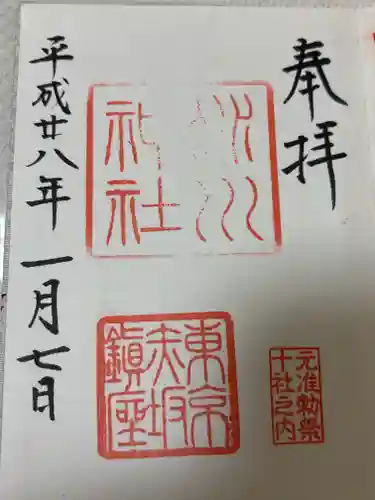 奉拝
氷川
神社
東京
赤坂
鎭座
元准勅祭
十社之内
平成廿八年一月七日